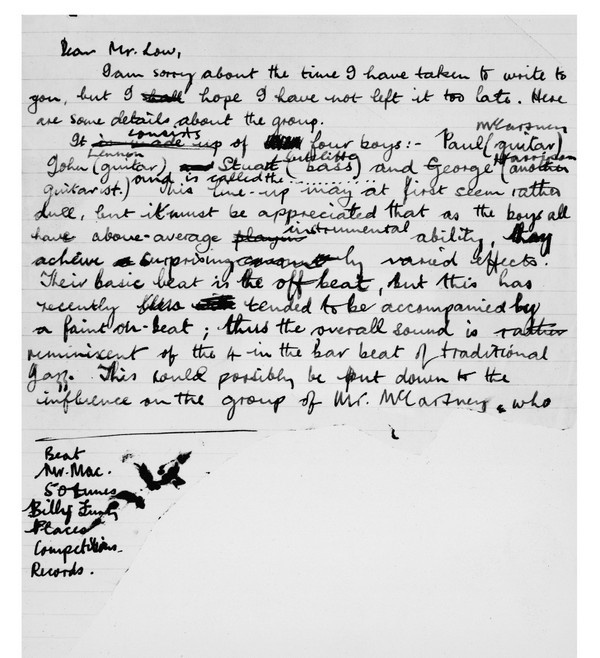 Dear Mr. Low,
I am sorry about the time I have taken to write to
you, but I shall hope I have not left it too late. Here
are some details about the group.
It is made up consists of four boys:- Paul McCartney (guitar)
John Lennon (guitar) Stuart Sutcliffe (bass) and George Harrison (another
guitarist.) and is called the ........... This line-up may at first seem rather
dull, but it must be appreciated that as the boys all
have above-average playing instrumental ability, they
achieve a surprisingly varied effects.
Their basic beat is the off beat, but this has
recently tended to be accompanied by
a faint on-beat; thus the overall sound is rather
reminiscent of the 4 in the bar beat of traditional
jazz. This could possibly be put down to the
influence on the group of Mr. McCartney, who
Beat
Mr. Mac.
50 tunes
Billy Fury
Places
Competitions.
Records.